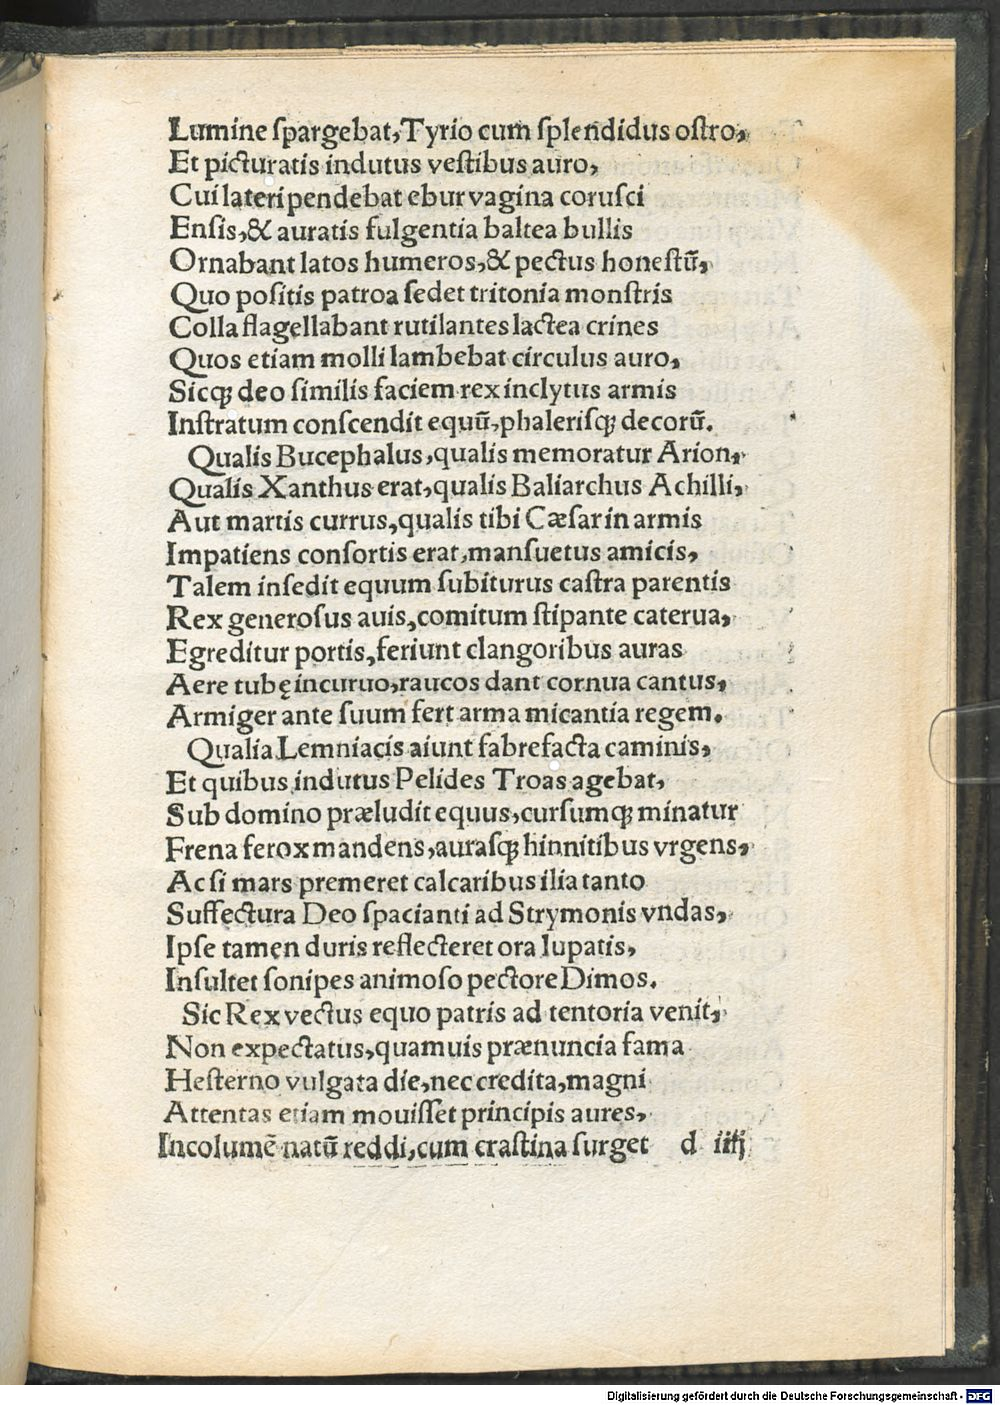 Lumine ſpargebat,Tyrio cum ſplendidus oſtro,
Et picturatis indutus veſtibus auro,
Cui lateri pendebat ebur vagina coruſci
Enſis,& auratis fulgentia baltea bullis
Ornabant latos humeros,& pectus honeſtū,
Quo poſitis patroa ſedet tritonia monſtris
Colla flagellabant rutilantes lactea crines
Quos etiam molli lambebat circulus auro,
Sicq; deo ſimilis faciem rex inclytus armis
Inſtratum conſcendit equū,phaleriſq; decorū.
Qualis Bucephalus,qualis memoratur Arion,
Qualis Xanthus erat,qualis Baliarchus Achilli,
Aut martis currus,qualis tibi Cæſar in armis
Impatiens conſortis erat,manſuetus amicis,
Talem inſedit equum ſubiturus caſtra parentis
Rex generoſus auis,comitum ſtipante caterua,
Egreditur portis,feriunt clangoribus auras
Aere tubę incuruo,raucos dant cornua cantus,
Armiger ante ſuum fert arma micantia regem.
Qualia Lemniacis aiunt fabrefacta caminis,
Et quibus indutus Pelides Troas agebat,
Sub domino præludit equus,curſumq; minatur
Frena ferox mandens,auraſq; hinnitibus vrgens,
Ac ſi mars premeret calcaribus ilia tanto
Suffectura Deo ſpacianti ad Strymonis vndas,
Ipſe tamen duris reflecteret ora lupatis,
Inſultet ſonipes animoſo pectore Dimos.
Sic Rex vectus equo patris ad tentoria venit,
Non expectatus,quamuis prænuncia fama
Heſterno vulgata die,nec credita,magni
Attentas etiam mouiſſet principis aures,
Incolumē natū reddi,cum craſtina ſurget d iiij
Digitalisierung gefördert durch die Deutsche Forschungsgemeinschaft - DFG